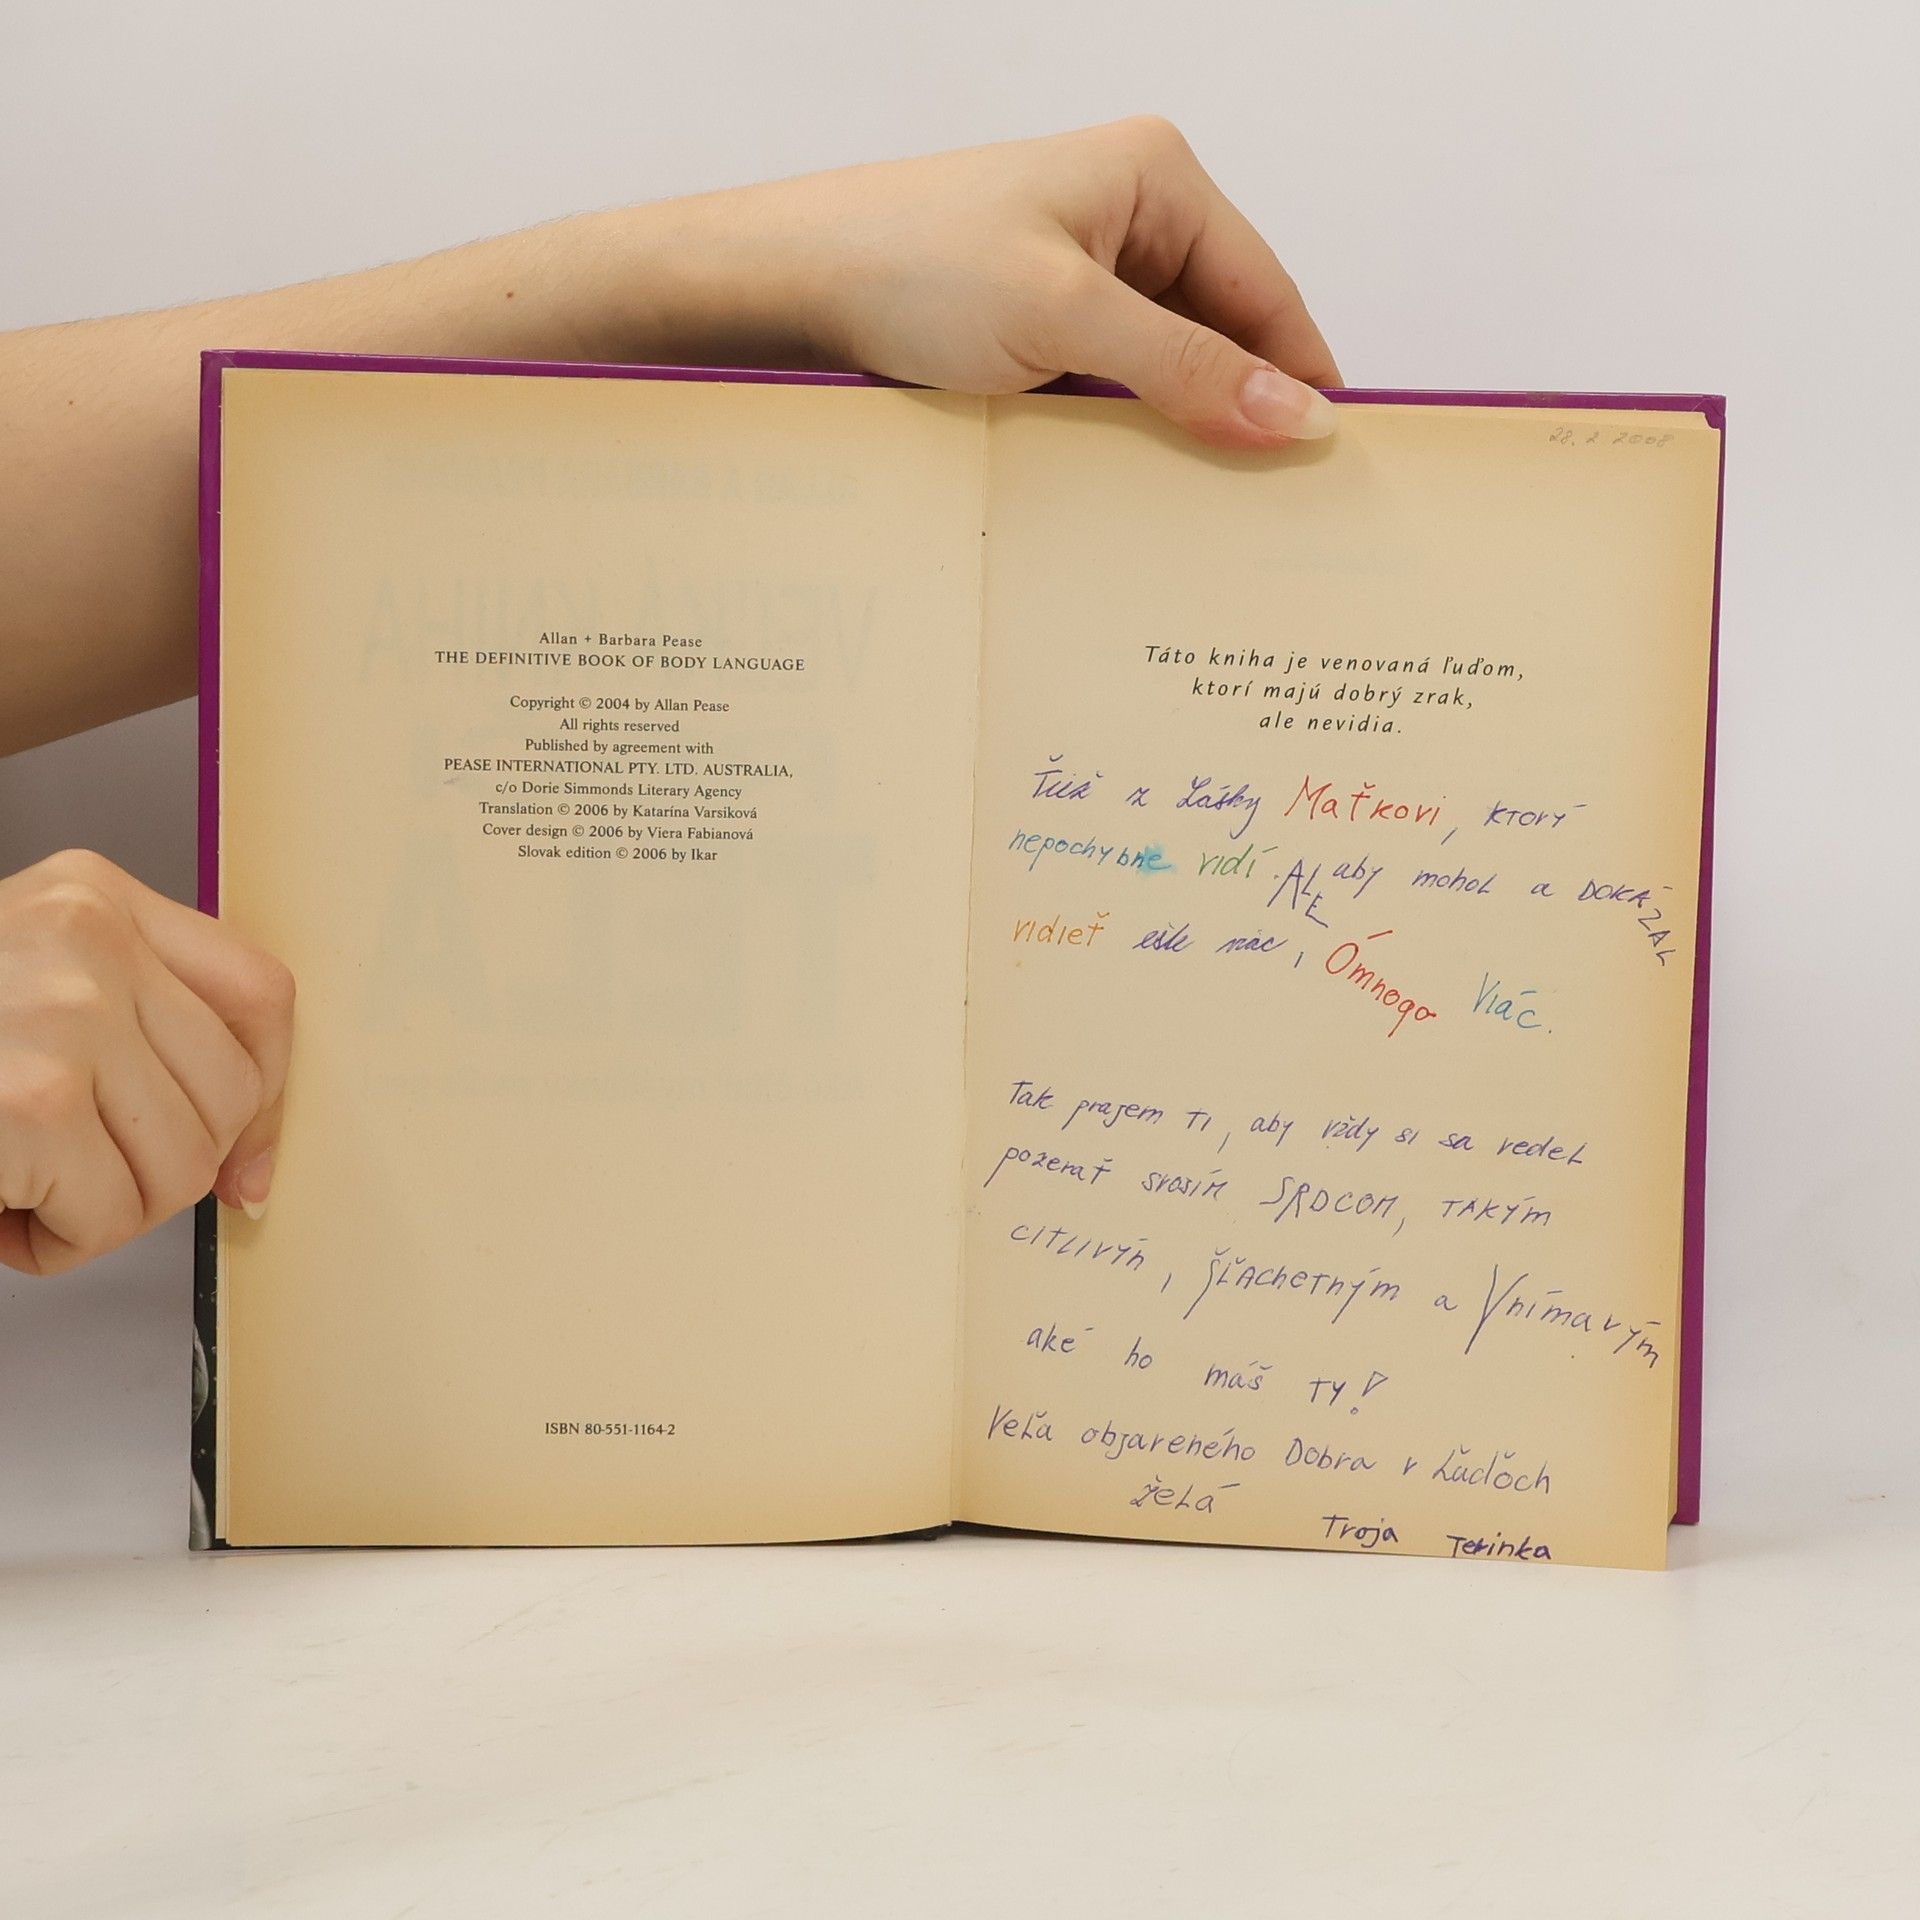 Allan + Barbara Pease
THE DEFINITIVE BOOK OF BODY LANGUAGE
Copyright © 2004 by Allan Pease
All rights reserved
Published by agreement with
PEASE INTERNATIONAL PTY. LTD. AUSTRALIA,
c/o Dorie Simmonds Literary Agency
Translation © 2006 by Katarína Varsiková
Cover design © 2006 by Viera Fabianová
Slovak edition © 2006 by Ikar
ISBN 80-551-1164-2
28. 2 2008
Táto kniha je venovaná ľuďom,
ktorí majú dobrý zrak,
ale nevidia.
z Lásky Maťkovi, ktorý
nepochybne vidí. ALE aby mohol a DOKÁZAL
vidieť ešte viac, Ómnogo Viác.
Tak prajem Ti, aby vždy si sa vedel
pozerať svojím SRDCOM, TAKÝM
CITLIVÝM, ŠĽAchetným a Vnímavým
aké ho máš TY!
Veľa objaveného Dobra v Ľuďoch
želá
Troja Terinka